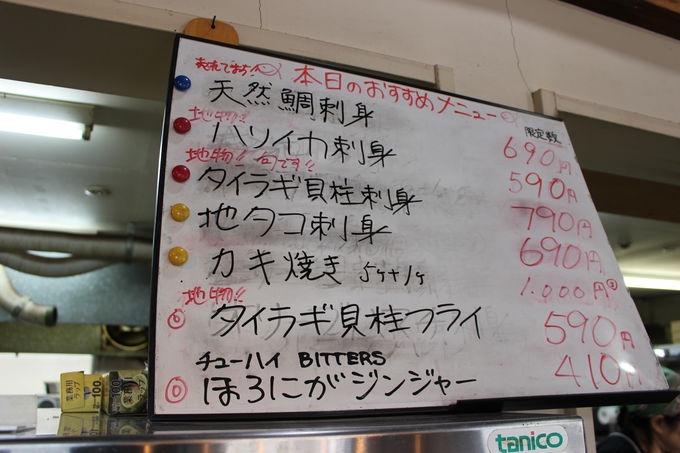 本日のおすすめメニュー
限定数
天然鯛刺身 690円
地物!!
ハリイカ刺身 590円
地物!! 旬です!!
タイラギ貝柱刺身 790円
地タコ刺身 690円
カキ焼き 5ケ+1ケ 1.000円
地物!!
タイラギ貝柱フライ 590円
チューハイ BITTERS
ほろにがジンジャー 410円
業務用
ラップ
100
100
tanico